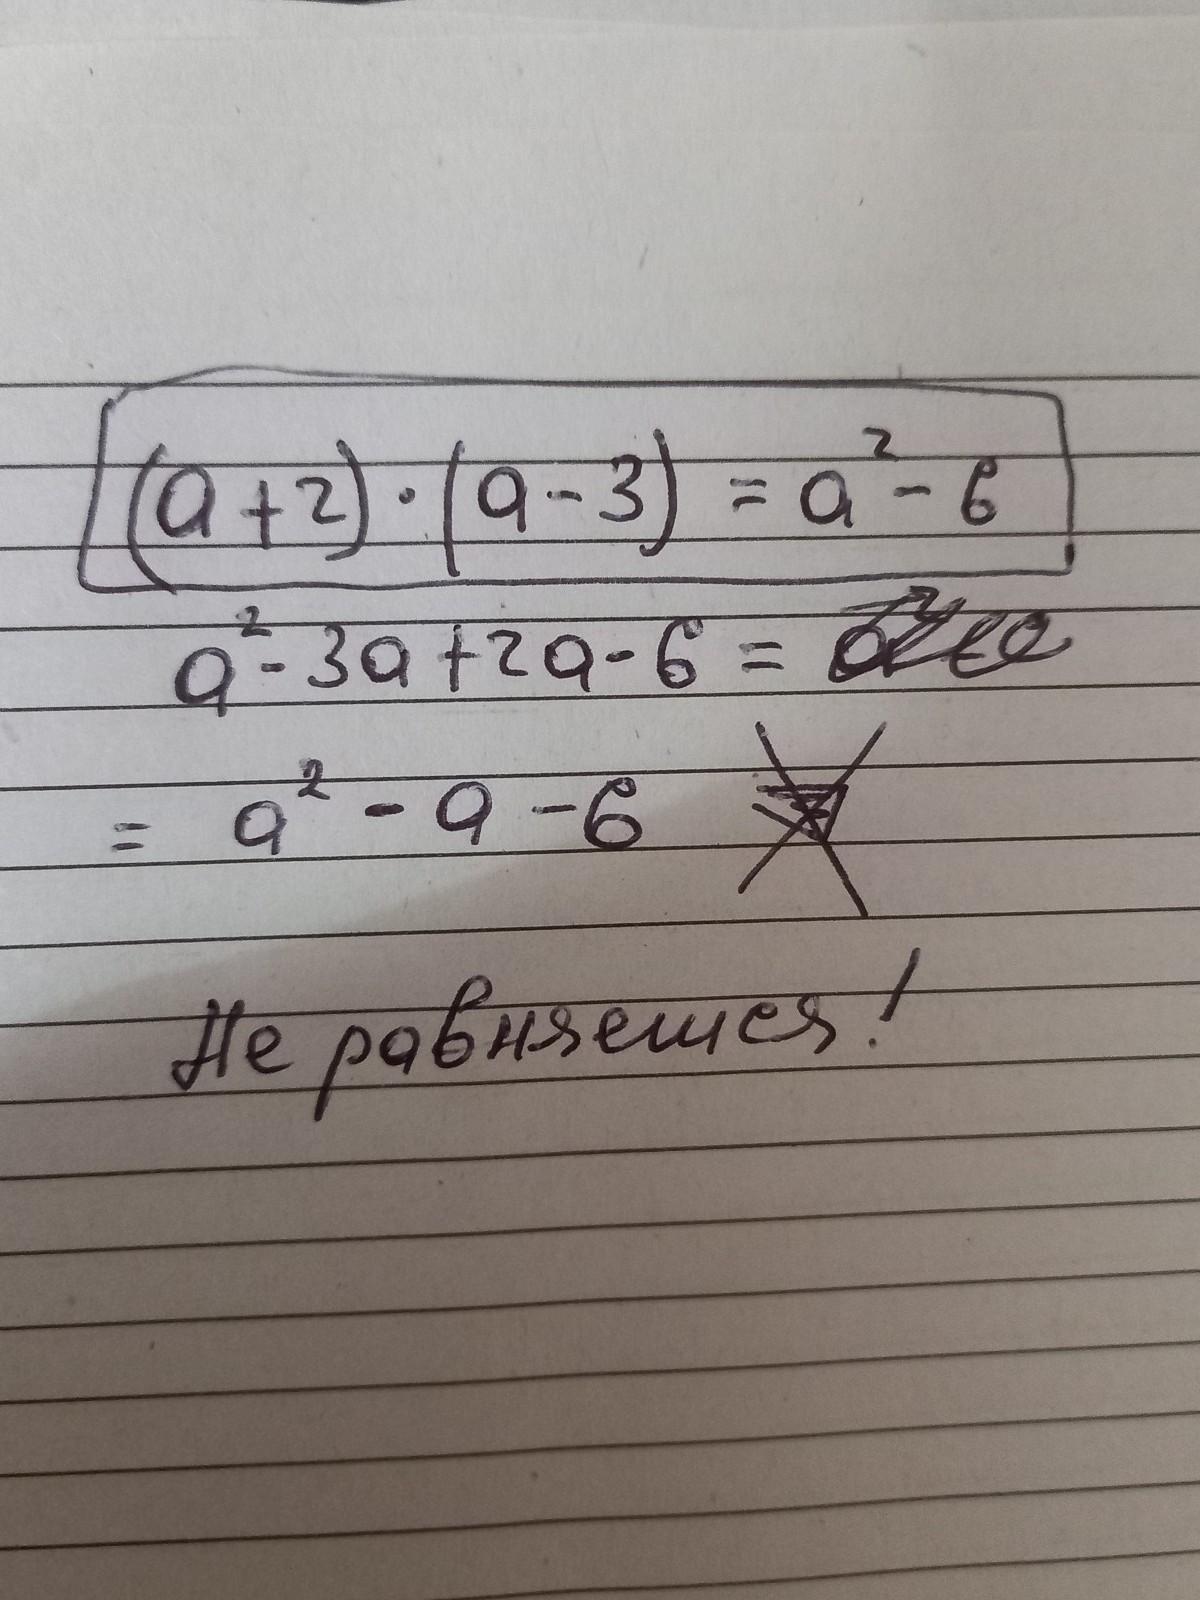 (a+2)·(a-3) = a² - 6
a² - 3a + 2a - 6 =
= a² - a - 6
Не равняется!